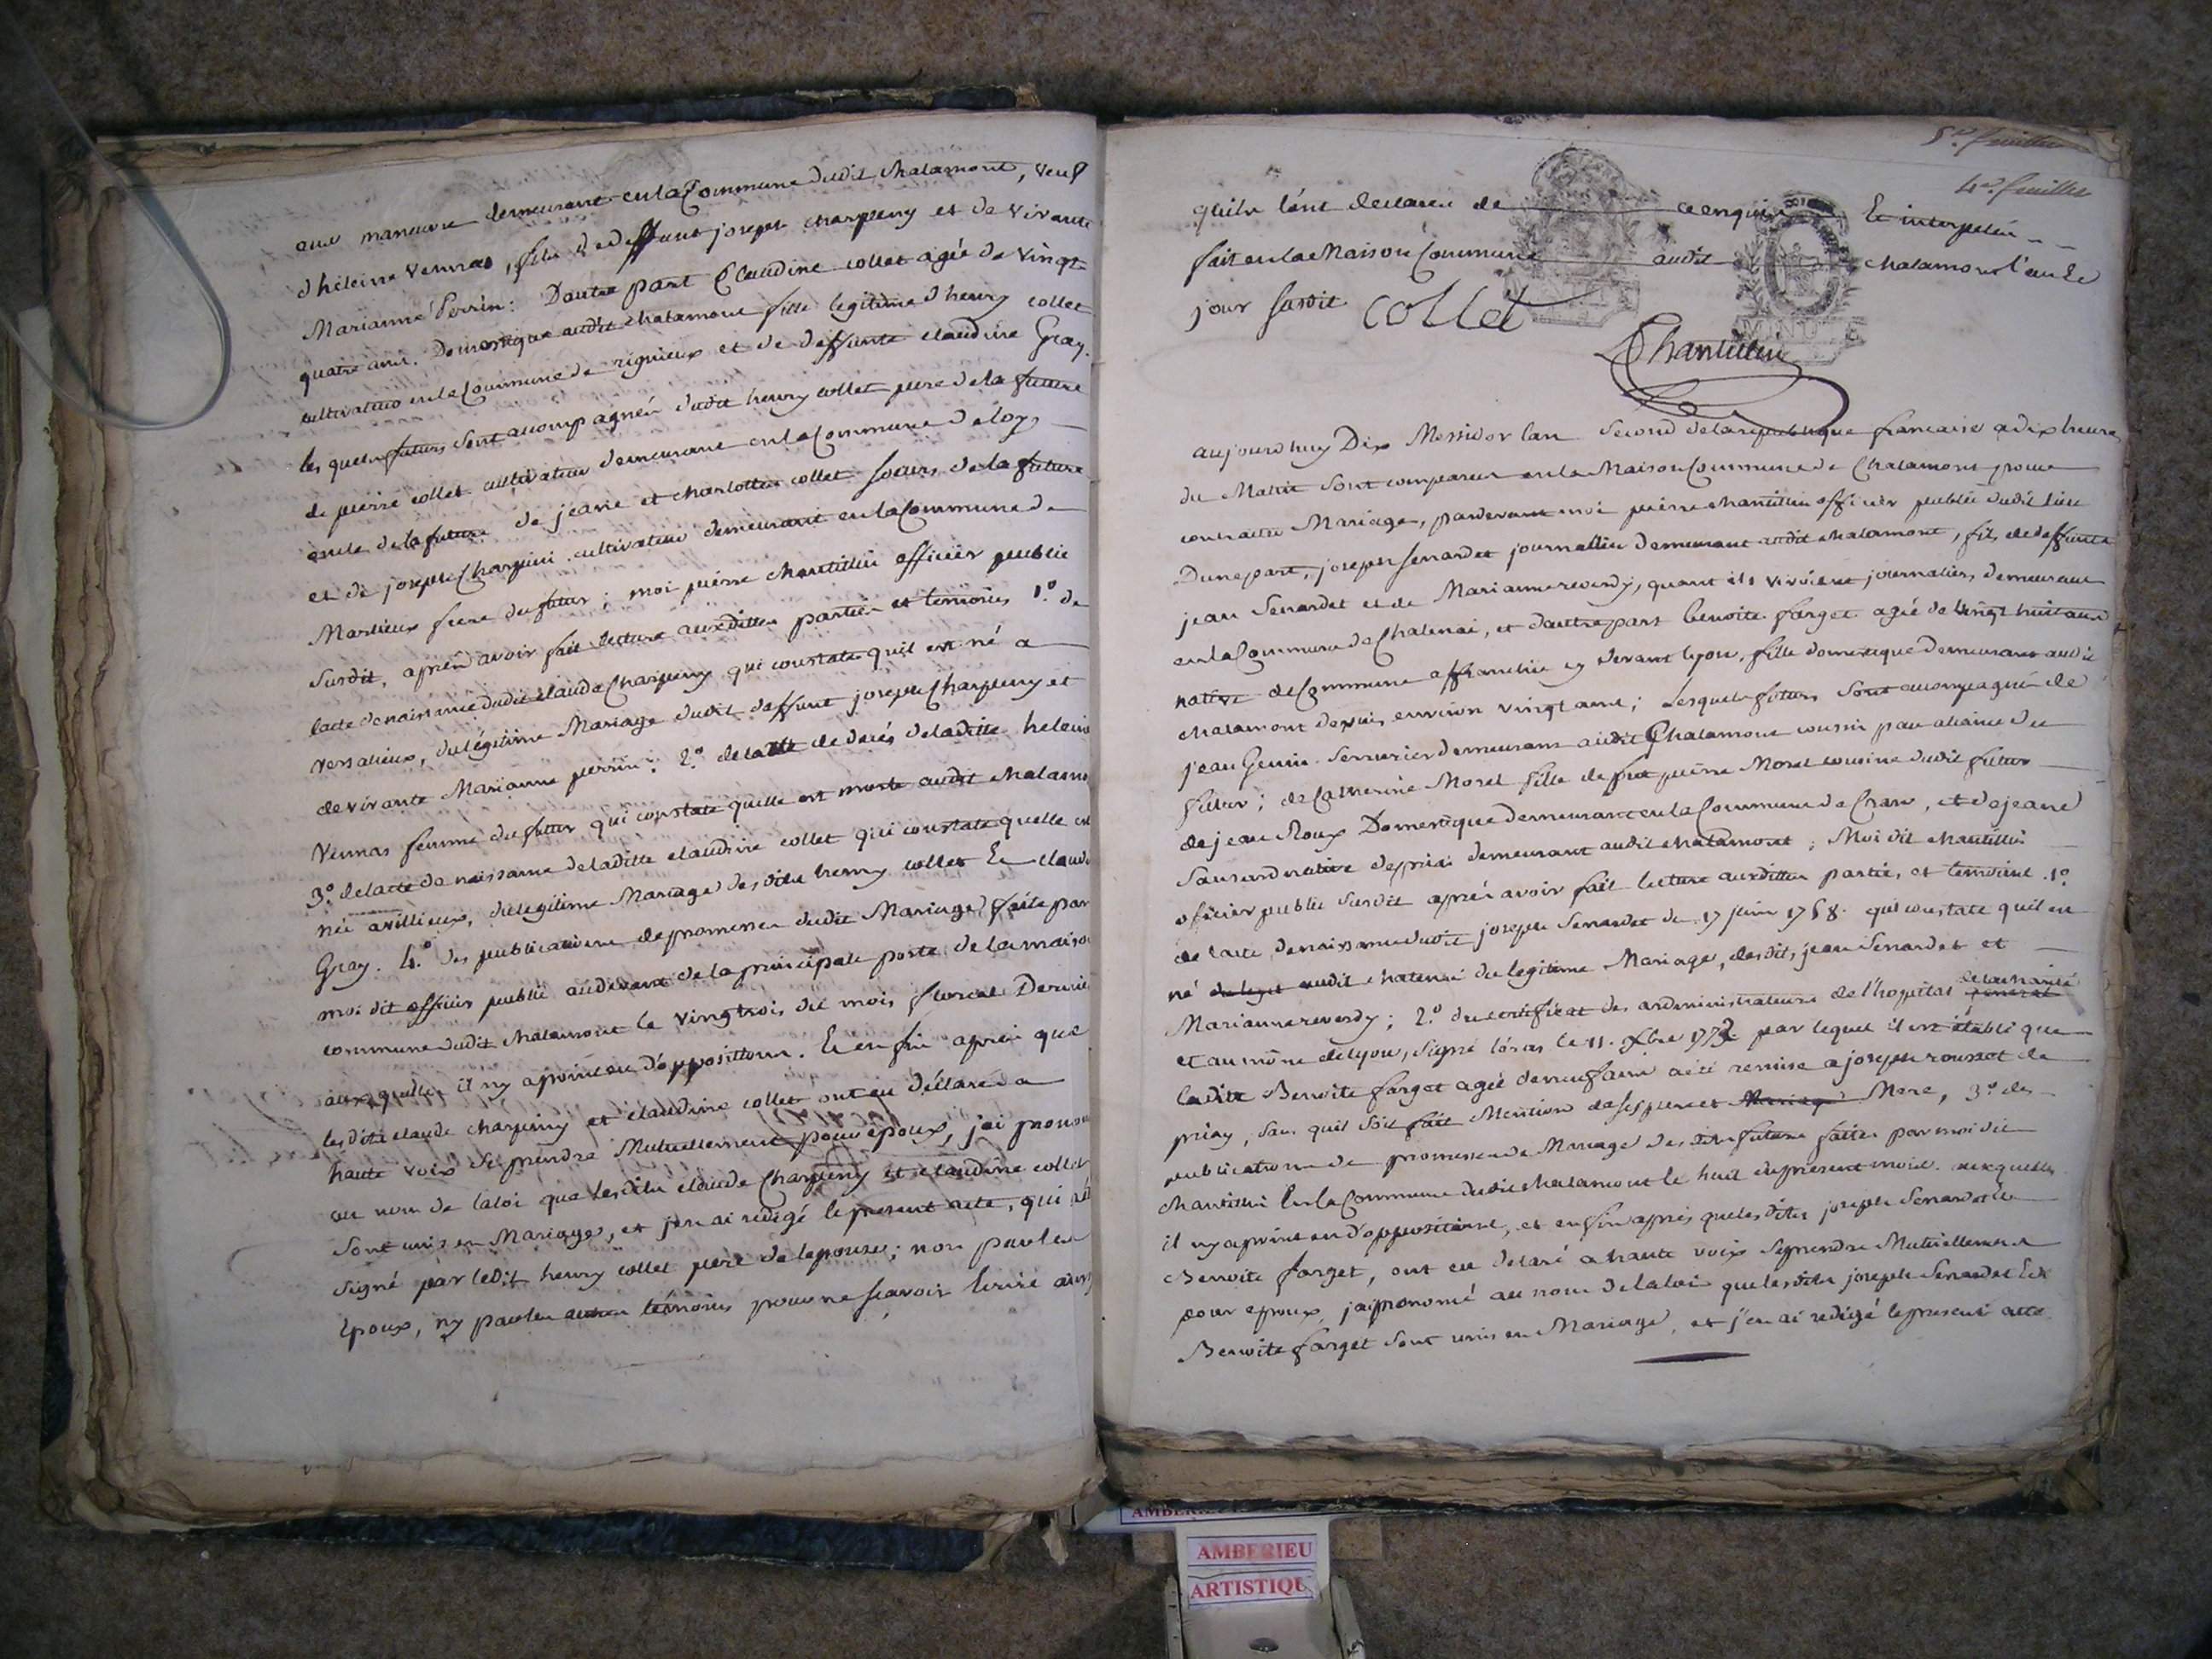 ans manœuvre demeurant en la Commune dudit Chalamont, veuf
d'heleine Vennas, fils de deffunt joseph charpeny et de vivante
Marianne Perrin: D'autre part Claudine collet agée de vingt
quatre ans. Domestique audit chalamont fille legitime d'henry collet
cultivateur en la Commune de rignieux et de deffunte claudine Gray.
les quels futurs sont accompagnés dudit henry collet pere de la future
de pierre collet cultivateur demeurant en la Commune de loys
oncle de la future de jeane et charlotte collet soeurs de la future
et de joseph Charpini cultivateur demeurant en la Commune de
Marlieux frere du futur; moi pierre chantillin officier public
Susdit, après avoir fait lecture auxdittes parties et temoins 1.º de
lacte de naissance dudit claude Charpeny qui constate quil est né a
versalieux, du légitime Mariage dudit deffunt joseph Charpeny et
de vivante Marianne perrin; 2.º de lacte de decés de laditte heleine
Vennas femme du futur qui constate quelle est morte audit chalamo
3.º de lacte de naissance de laditte claudine collet qui constate quelle est
née a villieux, du legitime Mariage des dits henry collet Et claud
Gray. 4.º des publications de promesses dudit Mariage faite par
moi dit officier public au devant de la principale porte de la maiso
commune dudit chalamont le vingt trois du mois floreal Dernie
aux quelles il ny a point eu d'oppositions. Et enfin après que
lesdits claude charpiny et claudine collet ont eu déclaré a
haute voix se prendre Mutuellement pour époux, j'ai prono
au nom de la loi que lesdits claude Charpeny et claudine collet
sont unis en Mariage, et j'en ai redigé le present acte, qui a ét
signé par ledit henry collet pere de lepouse; non par les
Epoux, ny par les autres témoins pour ne scavoir Ecrire ainsi
5.e feuillet
4.e feuillet
quils l'ont declaré de ce enquis Et interpellés
fait en la Maison Commune audit chalamont l'an Et
jour susdit collet
MINUTE
Chantillin
aujourdhuy Dix Messidor lan second de la republique francaise a dix heures
du Matin sont comparus en la Maison Commune de Chalamont pour
contracter Mariage, pardevant moi pierre chantillin officier public dudit lieu
D'une part, joseph senardet journallier demeurant audit chalamont, fils de deffunts
jean Senardet et de Marianne reverdy, quant ils vivoient journaliers, demeurant
en la Commune de Chalenai, et d'autre part benoite farget agée de vingt huit ans
native de Commune affranchie cy devant lyon, fille domestique demeurant audit
chalamont depuis environ vingt ans; Lesquels futurs sont accompagnés de
jean Genin Serrurier demeurant audit Chalamont cousin par aliance du
futur; de Catherine Morel fille de feu pierre Morel cousine dudit futur
de jean Roux Domestique demeurant en la Commune de Cran, et de jeane
native de priai demeurant audit chalamont; Moi dit chantillin
officier public susdit après avoir fait lecture auxdittes parties, et temoins .1.º
de lacte de naissance dudit joseph Senardet du 17 juin 1758. qui constate quil est
né audit chatenai du legitime Mariage, desdits jean Senardet et
Marianne reverdy; 2.º du certificat des administrateurs de l'hopital de la charité
et aumône de lyon, signé le 11. xbre 1773 par lequel il est établi que
laditte Benoite farget agée de neuf ans a été remise a joseph rousset de
priay, sans quil soit fait Mention de ses pere et Mere, 3.º des
publications de promesses de Mariage des dits futurs faites par moi dit
chantillin En la Commune dudit chalamont le huit du present mois. auxquelles
il ny a point eu d'oppositions, et enfin après que lesdits joseph Senardet Et
Benoite farget, ont eu declaré a haute voix se prendre Mutuellement
pour epoux, jai prononcé au nom de la loi que lesdits joseph Senardet Et
Benoite farget sont unis en Mariage, et j'en ai redigé le present acte
AMBERIEU
ARTISTIQU